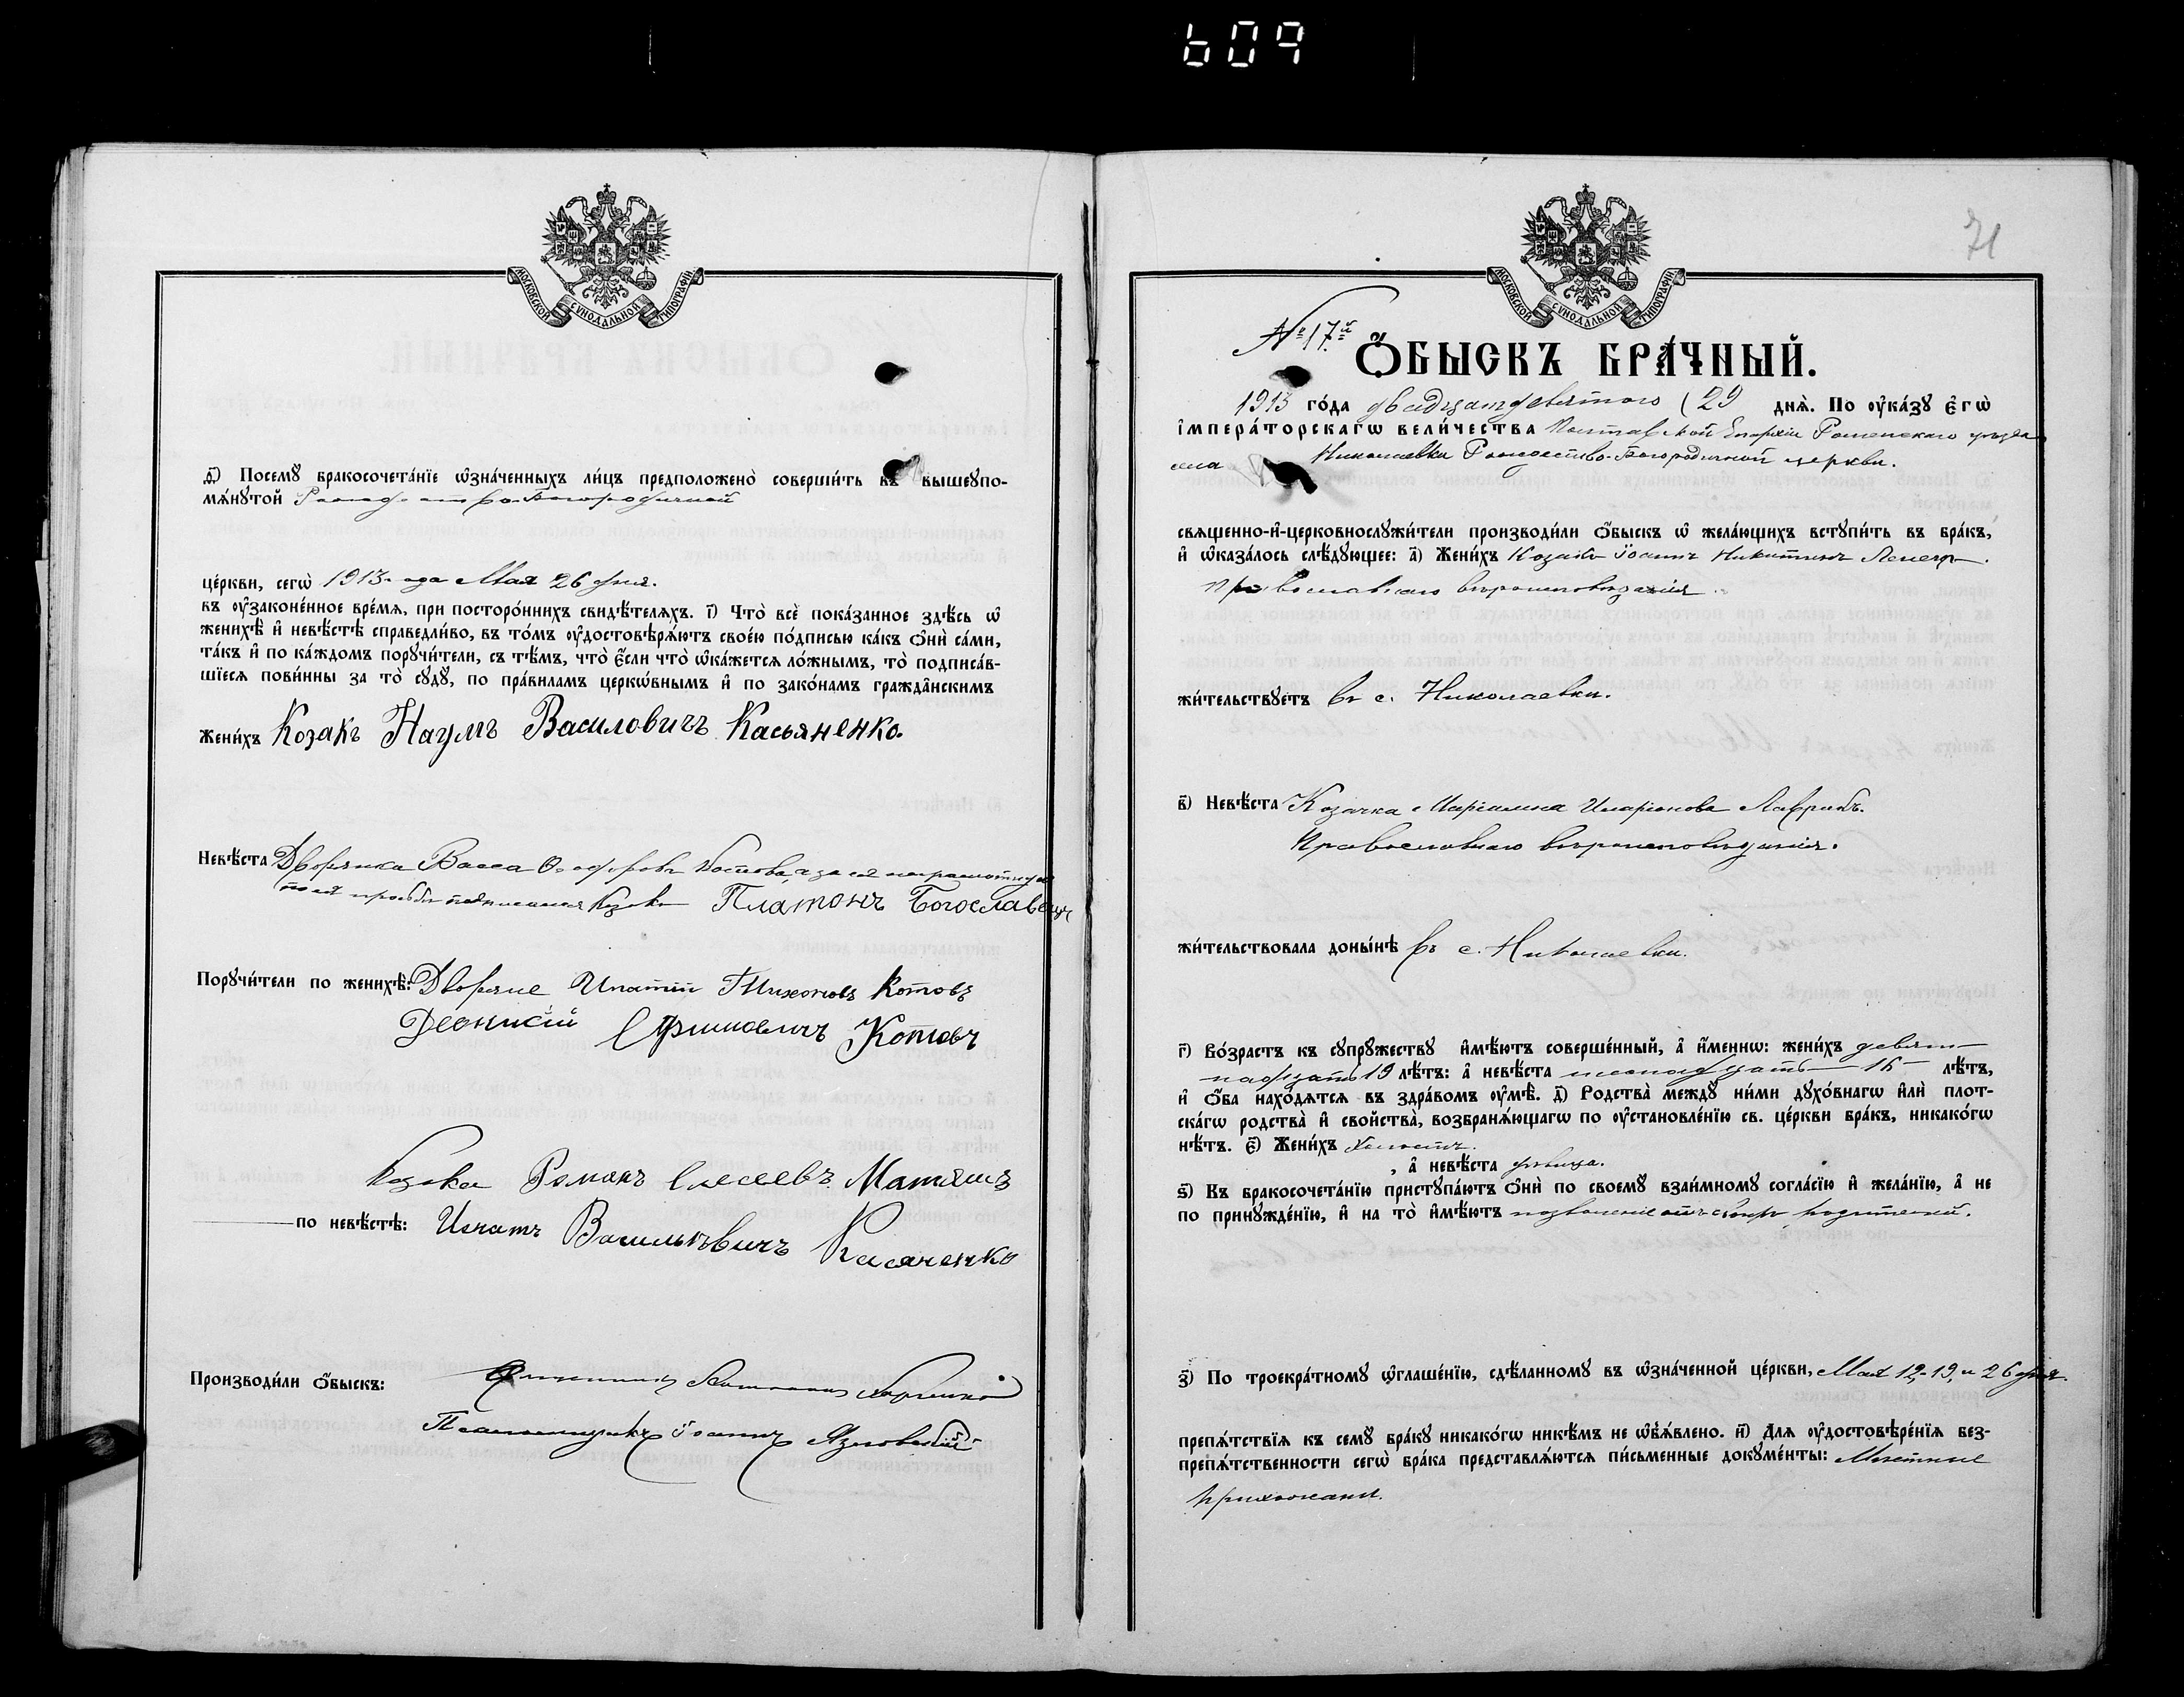 609
МОСКОВСКОЙ СѴНОДАЛЬНОЙ ТИПОГРАФІИ
Посемꙋ бракосочета́нїе ѡ҆зна́ченныхъ ли́цъ предположено̀ соверши́ть въ вышеꙋпо-
мѧ́нꙋтой Рождество-Богородичной
це́ркви, сегѡ̀ 1913 года Мая 26 дня.
въ оу҆законе́нное вре́мѧ, при посторо́ннихъ свидѣ́телѧхъ. і҃) Что̀ всѐ пока́занное здѣ́сь ѡ҆
женихѣ̀ и҆ невѣ́стѣ справедли́во, въ то́мъ оу҆достовѣрѧ́ютъ свое́ю по́дписью ка́къ ѻ҆нѝ са́ми,
та́къ и҆ по ка́ждомъ порꙋчи́тели, съ тѣ́мъ, что̀ є҆́сли что̀ ѡ҆ка́жетсѧ ло́жнымъ, то̀ подписа́в-
шїесѧ пови́нны за то̀ сꙋдꙋ̀, по пра́виламъ церкѡ́внымъ и҆ по зако́намъ гражда̑нскимъ
Жени́хъ Козакъ Наумъ Василовичъ Касьяненко.
Невѣ́ста Дворянка Васса Ѳеодорова Котова, а за ея неграмотную
по ея просьбѣ подписался Козакъ Платонъ Богославец
Порꙋчи́тели по женихѣ̀: Дворяне Ипатій Тихоновъ Котовъ
Деонисій Ефимовичъ Котовъ
Козаки Романъ Елесеевъ Матяшъ
по невѣ́стѣ: Игнатъ Васильевичъ Касяненко
Производи́ли ѻ҆́быскъ: Священникъ
Псаломщикъ Іоаннъ Язловскій
71
МОСКОВСКОЙ СѴНОДАЛЬНОЙ ТИПОГРАФІИ
№ 17.й
Ѻ҆БЫСКЪ БРА́ЧНЫЙ.
1913 го́да двадцатдевятого (29 днѧ̀. По оу҆ка́зꙋ є҆гѡ̀
і҆мпера́торскагѡ вели́чества Полтавской Епархіи Роменскаго уѣзда
села Николаевки Рождество-Богородичной церкви.
свѧщенно-и҆-церковнослꙋжи́тели производи́ли ѻ҆́быскъ ѡ҆ жела́ющихъ встꙋпи́ть въ бра́къ,
и҆ ѡ҆каза́лось слѣ́дꙋющее: а҃) Жени́хъ Козакъ Іоаннъ Никитинъ
православнаго вѣроисповѣданія.
жи́тельствꙋетъ въ с. Николаевки.
в҃) Невѣ́ста Козачка Маріамна Иларіонова Лаврикъ.
Православнаго вѣроисповѣданія.
жи́тельствовала доны́нѣ въ с. Николаевки.
г҃) Во́зрастъ къ сꙋпрꙋ́жествꙋ и҆мѣ́ютъ соверше́нный, а҆ и҆́меннѡ: жени́хъ девят-
надцать 19 лѣ́тъ: а҆ невѣ́ста шеснадцать 16 лѣ́тъ,
и҆ ѻ҆́ба нахо́дѧтсѧ въ здра́вомъ оу҆мѣ̀. д҃) Родства̀ междꙋ̀ ни́ми дꙋхо́внагѡ и҆лѝ плот-
ска́гѡ родства̀ и҆ сво́йства̀, возбранѧ́ющагѡ по оу҆становле́нїю св. це́ркви бра́къ, никако́гѡ
нѣ́тъ. є҃) Жени́хъ холостъ.
, а҆ невѣ́ста дѣвица.
ѕ҃) Къ бракосочета́нїю пристꙋпа́ютъ ѻ҆нѝ по своемꙋ̀ взаи́мномꙋ согла́сїю и҆ жела́нїю, а҆ не
по принꙋжде́нїю, и҆ на то̀ и҆мѣ́ютъ позволеніе отъ своихъ родителей.
з҃) По троекра́тномꙋ ѡ҆глаше́нїю, сдѣ́ланномꙋ въ ѡ҆зна́ченной це́ркви, Мая 12, 19, и 26 дня.
препѧ́тствїѧ къ семꙋ̀ бра́кꙋ никако́гѡ никѣ́мъ не ѡ҆б̾ѧ́влено. и҃) Длѧ оу҆достовѣре́нїѧ без-
препѧ́тственности сегѡ̀ бра́ка представлѧ́ютсѧ пи́сьменные докꙋме́нты: Мѣстные
прихожане.